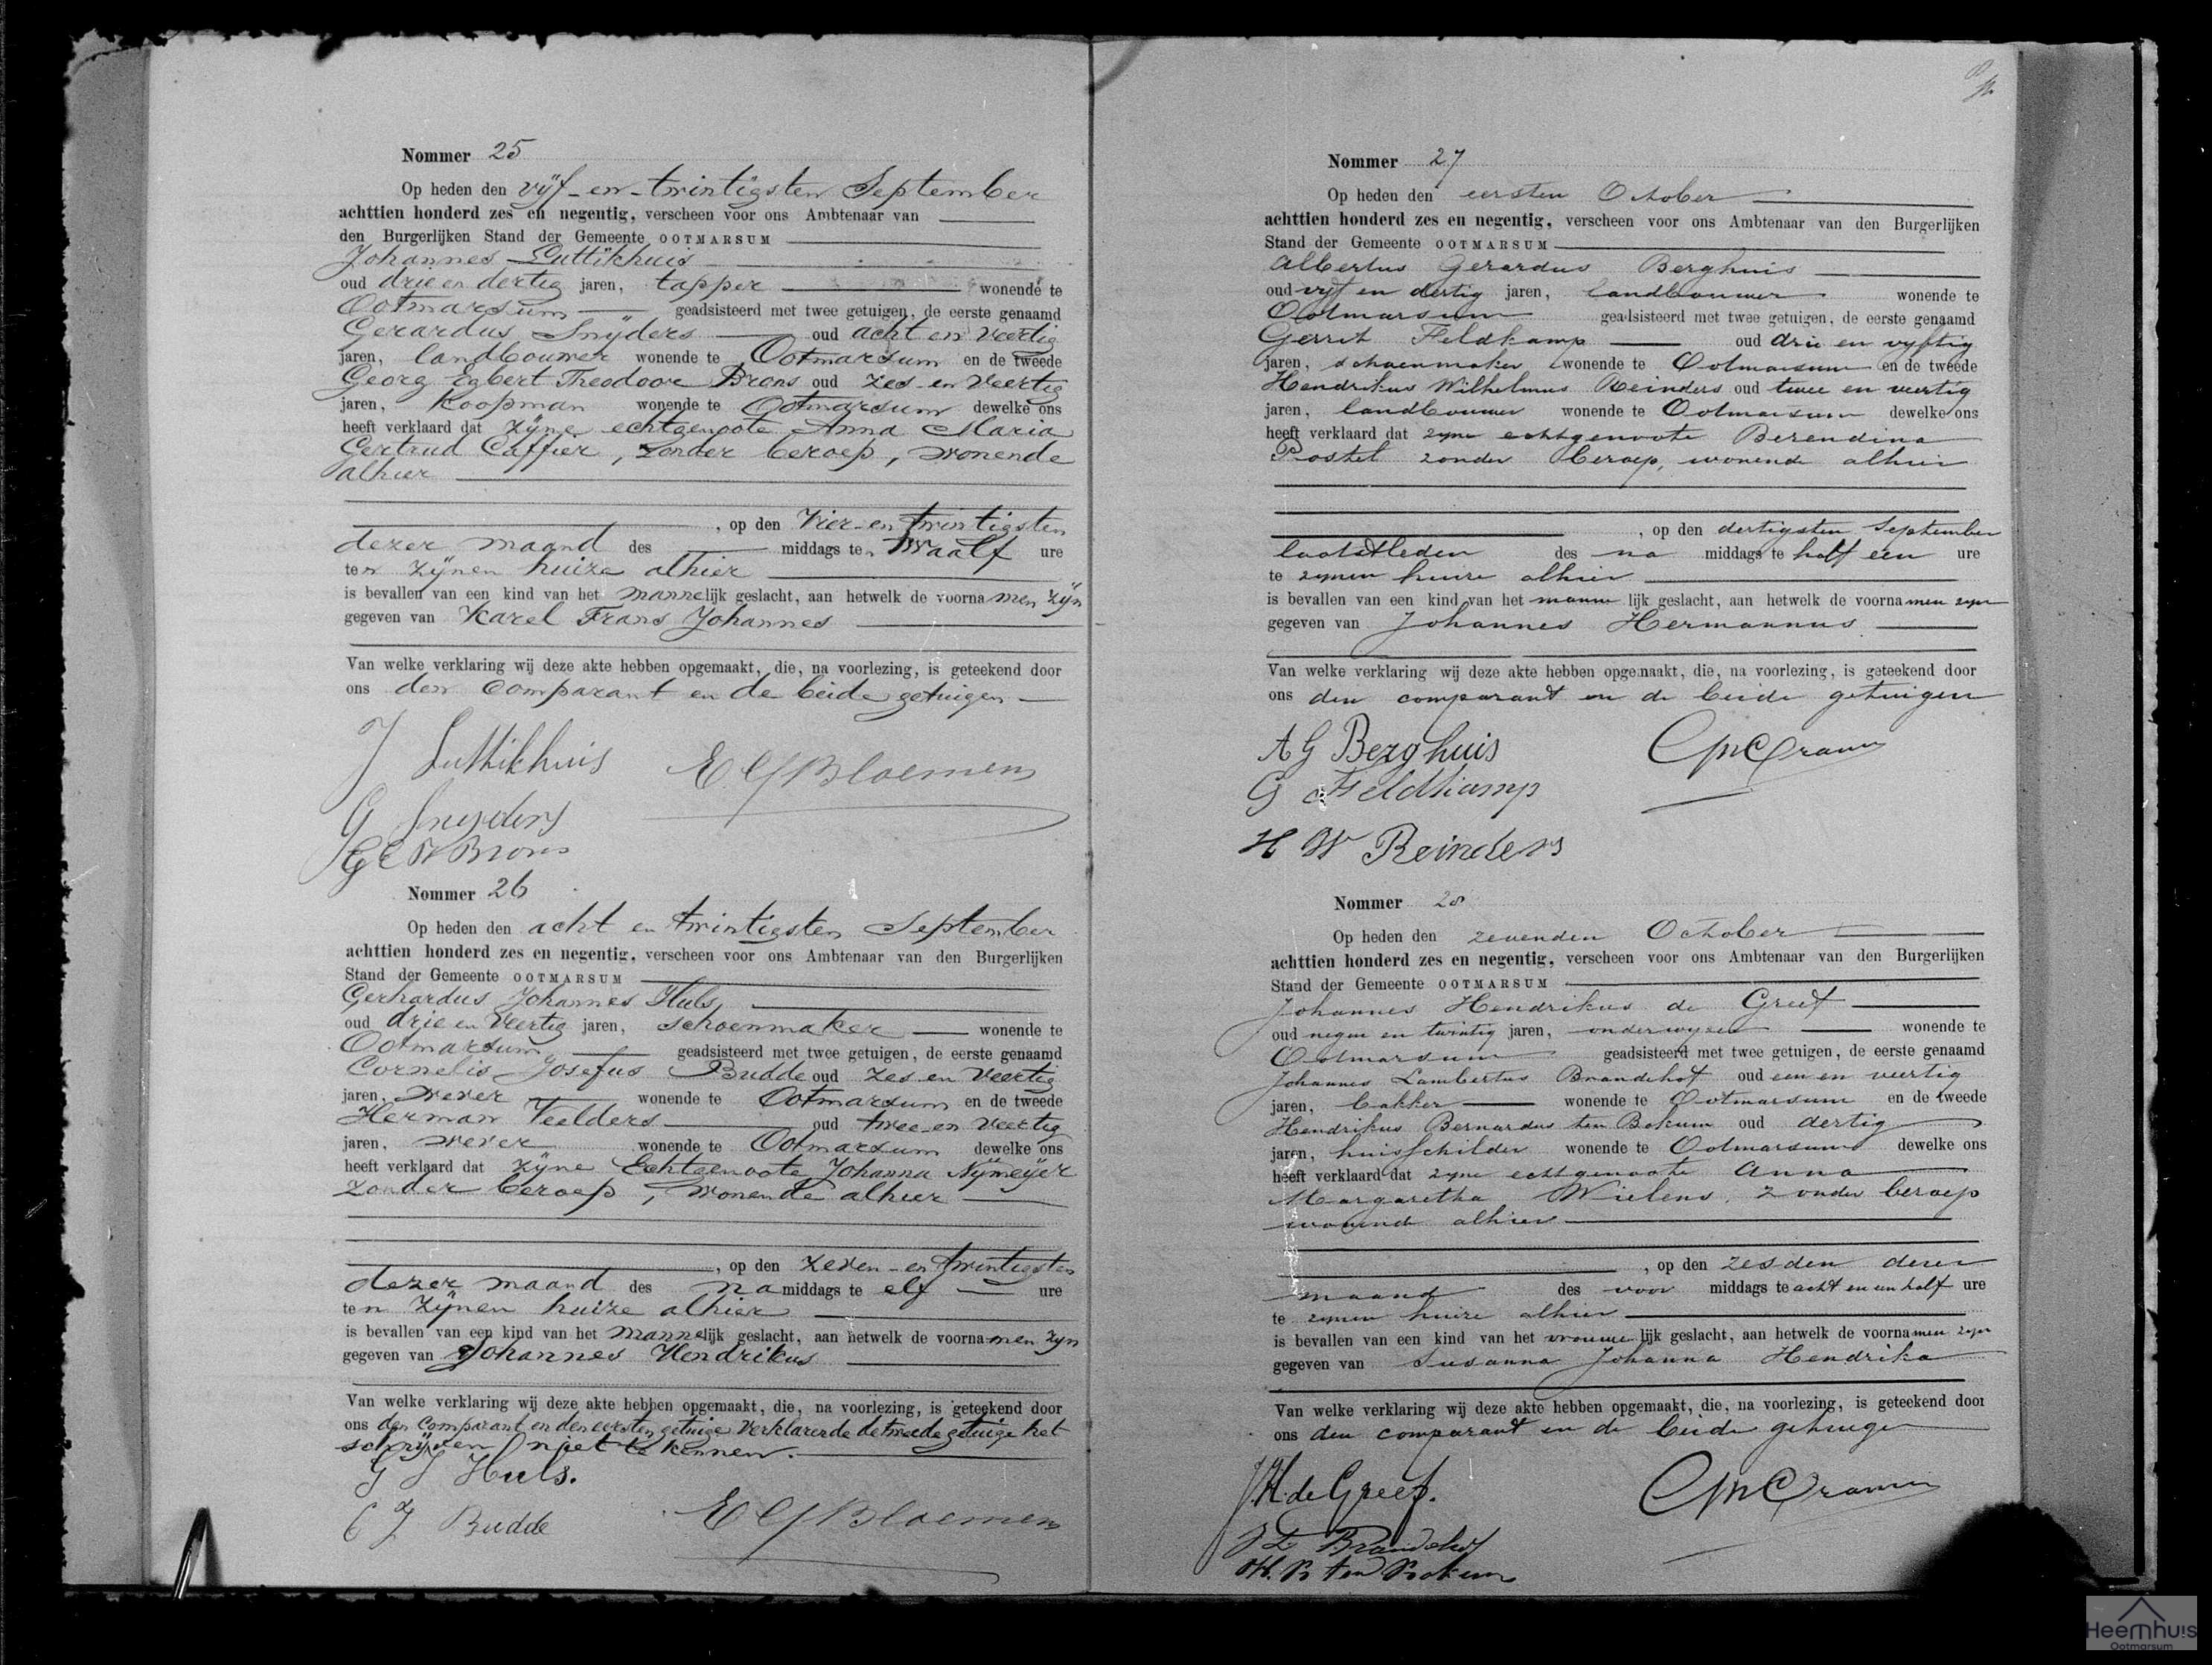 Nommer 25
Op heden den vijf-en-twintigsten September
achttien honderd zes en negentig, verscheen voor ons Ambtenaar van
den Burgerlijken Stand der Gemeente OOTMARSUM
Johannes Luttikhuis
oud drie en dertig jaren, tapper wonende te
Ootmarsum geadsisteerd met twee getuigen, de eerste genaamd
Gerardus Snijders oud acht en veertig
jaren, landbouwer wonende te Ootmarsum en de tweede
Georg Egbert Theodoor Brons oud zes en veertig
jaren, koopman wonende te Ootmarsum dewelke ons
heeft verklaard dat zijne echtgenoote Anna Maria
Gertrud Caffier, zonder beroep, wonende
alhier
, op den vier-en-twintigsten
dezer maand des middags ten twaalf ure
ten zijnen huize alhier
is bevallen van een kind van het mannelijk geslacht, aan hetwelk de voornamen zijn
gegeven van Karel Frans Johannes
Van welke verklaring wij deze akte hebben opgemaakt, die, na voorlezing, is geteekend door
ons den comparant en de beide getuigen
J Luttikhuis
G Snyders
G E Th Brons
Nommer 26
Op heden den acht en twintigsten September
achttien honderd zes en negentig, verscheen voor ons Ambtenaar van den Burgerlijken
Stand der Gemeente OOTMARSUM
Gerhardus Johannes Huls,
oud drie en veertig jaren, schoenmaker wonende te
Ootmarsum geadsisteerd met twee getuigen, de eerste genaamd
Cornelis Josefus Budde oud zes en veertig
jaren, wever wonende te Ootmarsum en de tweede
Herman Veelders oud twee en veertig
jaren, wever wonende te Ootmarsum dewelke ons
heeft verklaard dat zijne Echtgenoote Johanna Nijmeijer
zonder beroep, wonende alhier
, op den zeven-en-twintigsten
dezer maand des na middags te elf ure
ten zijnen huize alhier
is bevallen van een kind van het mannelijk geslacht, aan hetwelk de voornamen zijn
gegeven van Johannes Hendrikus
Van welke verklaring wij deze akte hebben opgemaakt, die, na voorlezing, is geteekend door
ons den comparant en den eersten getuige verklarende de tweede getuige het
schrijven niet te kennen.
G J Huls.
C J Budde Bloemen
Nommer 27
Op heden den eersten October
achttien honderd zes en negentig, verscheen voor ons Ambtenaar van den Burgerlijken
Stand der Gemeente OOTMARSUM
Albertus Gerardus Berghuis
oud vijf en dertig jaren, landbouwer wonende te
Ootmarsum geadsisteerd met twee getuigen, de eerste genaamd
Gerrit Feldkamp oud drie en vyftig
jaren, schoenmaker wonende te Ootmarsum en de tweede
Hendrikus Wilhelmus Reinders oud twee en veertig
jaren, landbouwer wonende te Ootmarsum dewelke ons
heeft verklaard dat zyne echtgenoote Berendina
Postel zonder beroep, wonende alhier
, op den dertigsten September
laatstleden des na middags te half een ure
te zynen huize alhier
is bevallen van een kind van het manne lijk geslacht, aan hetwelk de voornamen zyn
gegeven van Johannes Hermannus
Van welke verklaring wij deze akte hebben opgemaakt, die, na voorlezing, is geteekend door
ons den comparant en de beide getuigen
A G Berghuis
G Feldkamp
H W Reinders
Nommer 28
Op heden den zevenden October
achttien honderd zes en negentig, verscheen voor ons Ambtenaar van den Burgerlijken
Stand der Gemeente OOTMARSUM
Johannes Hendrikus de Greef
oud negen en twintig jaren, onderwyzer wonende te
Ootmarsum geadsisteerd met twee getuigen, de eerste genaamd
Johannes Lambertus Brandehof oud een en veertig
jaren, bakker wonende te Ootmarsum en de tweede
Hendrikus Bernardus ten Bokum oud dertig
jaren, huisschilder wonende te Ootmarsum dewelke ons
heeft verklaard dat zyne echtgenoote Anna
Margaretha Wielens, zonder beroep
wonend alhier
, op den zesden dezer
maand des voor middags te acht en een half ure
te zynen huize alhier
is bevallen van een kind van het vrouwe lijk geslacht, aan hetwelk de voornamen zyn
gegeven van Susanna Johanna Hendrika
Van welke verklaring wij deze akte hebben opgemaakt, die, na voorlezing, is geteekend door
ons den comparant en de beide getuigen
J.H. de Greef.
J L Brandehof
H. B ten Bokum
Heemhuis
Ootmarsum